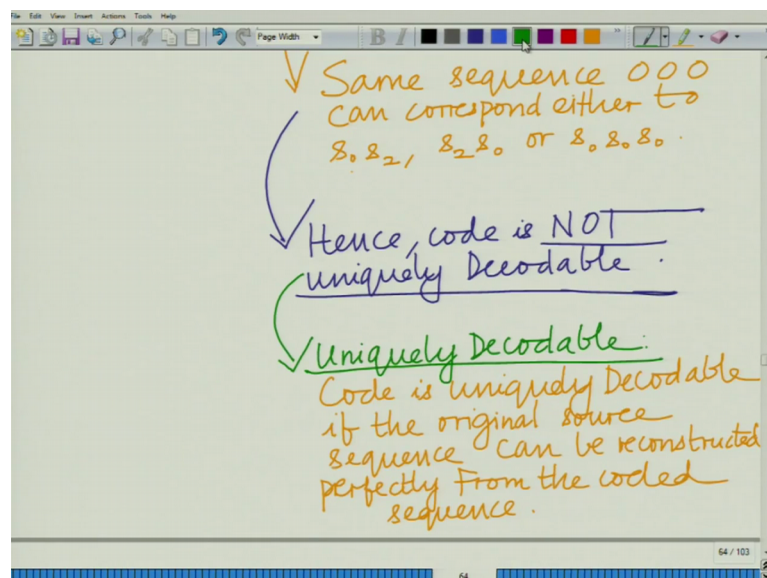 File Edit View Insert Actions Tools Help
Page Width
B I
Same sequence 000
can correspond either to
s₀s₂, s₂s₀ or s₀s₀s₀.
Hence, code is NOT
uniquely Decodable.
Uniquely Decodable:
Code is uniquely Decodable
if the original source
sequence can be reconstructed
perfectly From the coded
sequence.
64 / 103
64